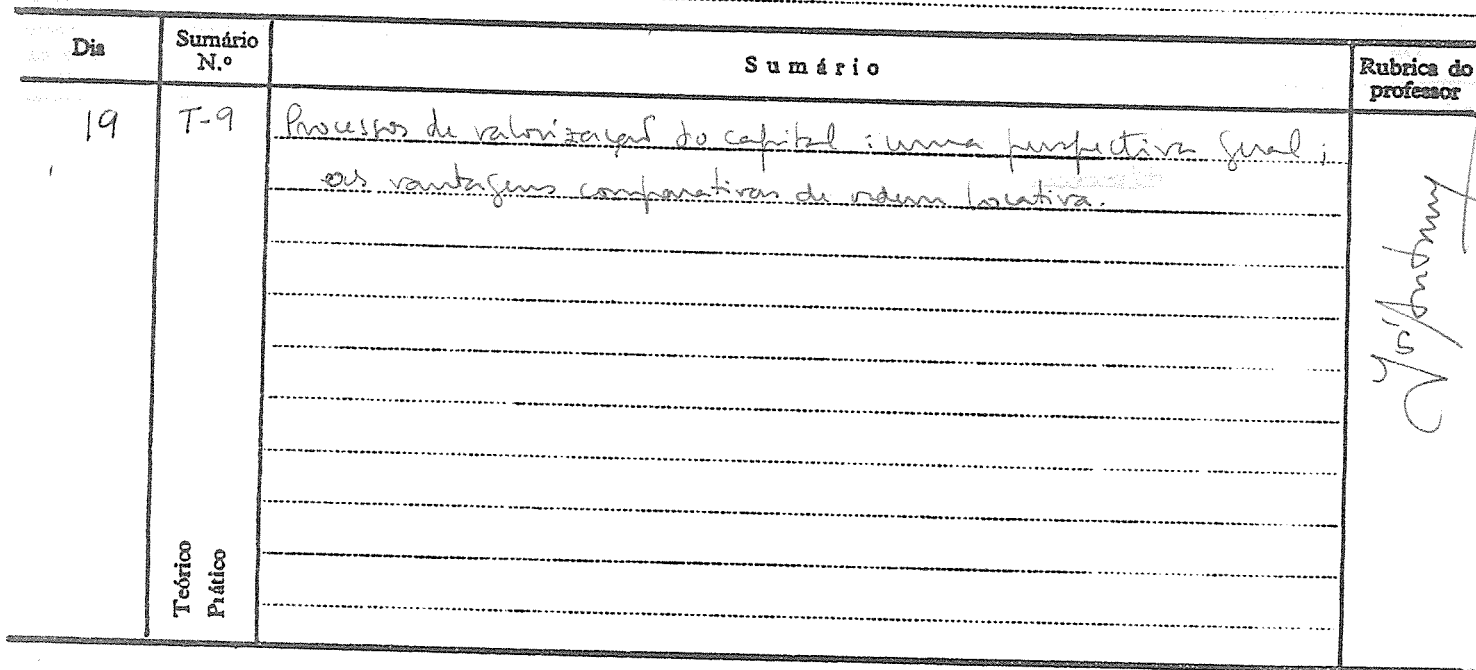 Dia
Sumário N.º
Sumário
Rubrica do professor
19
T-9
Processos de valorização do capital: uma perspectiva geral;
as vantagens comparativas de ordem locativa.
Teórico
Prático